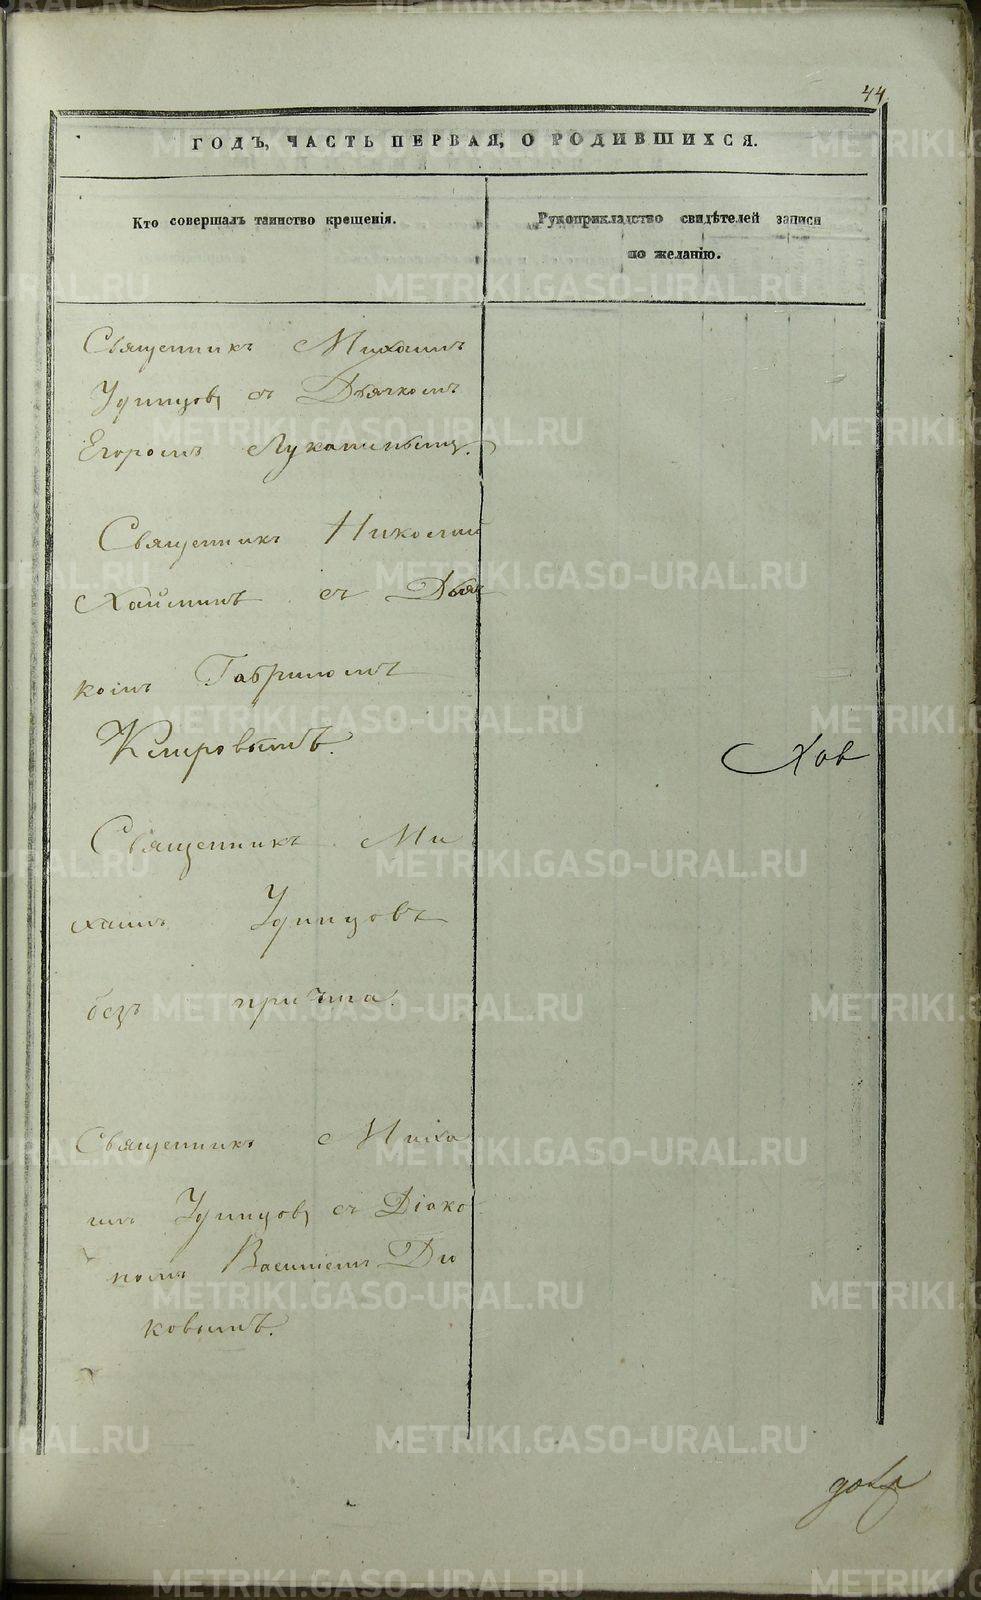 44.
ГОДЪ, ЧАСТЬ ПЕРВАЯ, О РОДИВШИХСЯ.
Кто совершалъ таинство крещенія.
Рукоприкладство свидѣтелей записи
по желанію.
Священникъ Михаилъ
Удинцовъ съ Дьячкомъ
Егоромъ Лукаинымъ.
Священникъ Николай
съ Дьяч
комъ Гавриломъ
Кипровымъ.
Хов
Священникъ Ми
хаилъ Удинцовъ
безъ причта.
Священникъ Миха
илъ Удинцовъ съ Діако
номъ Василіемъ Ди
ковымъ.
METRIKI.GASO-URAL.RU